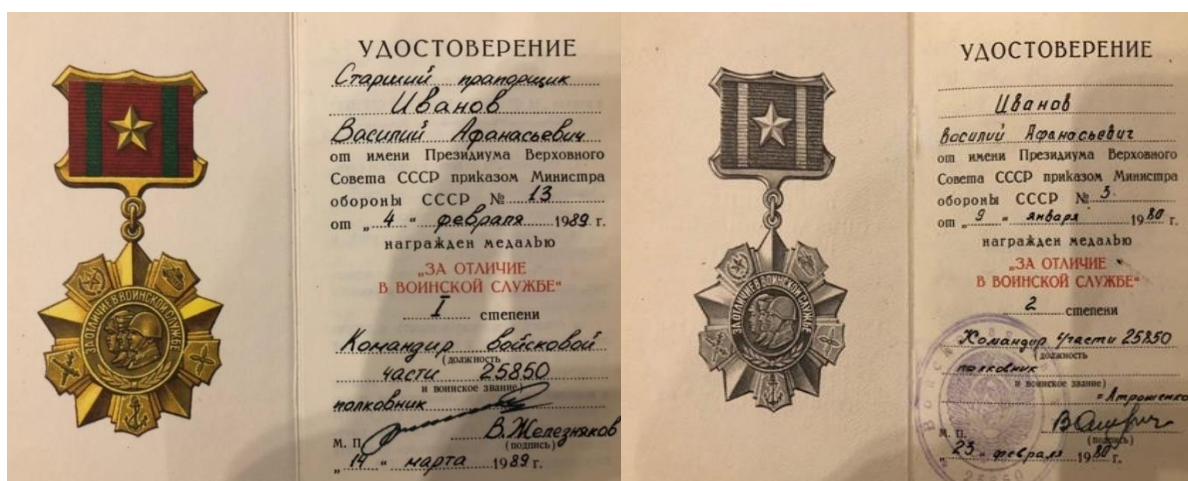 ЗА ОТЛИЧИЕ В ВОИНСКОЙ СЛУЖБЕ
УДОСТОВЕРЕНИЕ
Старший прапорщик
Иванов
Василий Афанасьевич
от имени Президиума Верховного
Совета СССР приказом Министра
обороны СССР № 13
от „4“ февраля 1989 г.
награжден медалью
„ЗА ОТЛИЧИЕ
В ВОИНСКОЙ СЛУЖБЕ“
I степени
Командир войсковой
(должность
части 25850
и воинское звание)
полковник
В. Железняков
М. П. (подпись)
„14“ марта 1989 г.
ЗА ОТЛИЧИЕ В ВОИНСКОЙ СЛУЖБЕ
УДОСТОВЕРЕНИЕ
Иванов
Василий Афанасьевич
от имени Президиума Верховного
Совета СССР приказом Министра
обороны СССР № 5
от „9“ января 1980 г.
награжден медалью
„ЗА ОТЛИЧИЕ
В ВОИНСКОЙ СЛУЖБЕ“
2 степени
Командир части 25850
(должность
полковник
и воинское звание)
Атрошенко
М. П. (подпись)
„23“ февраля 1980 г.
25850